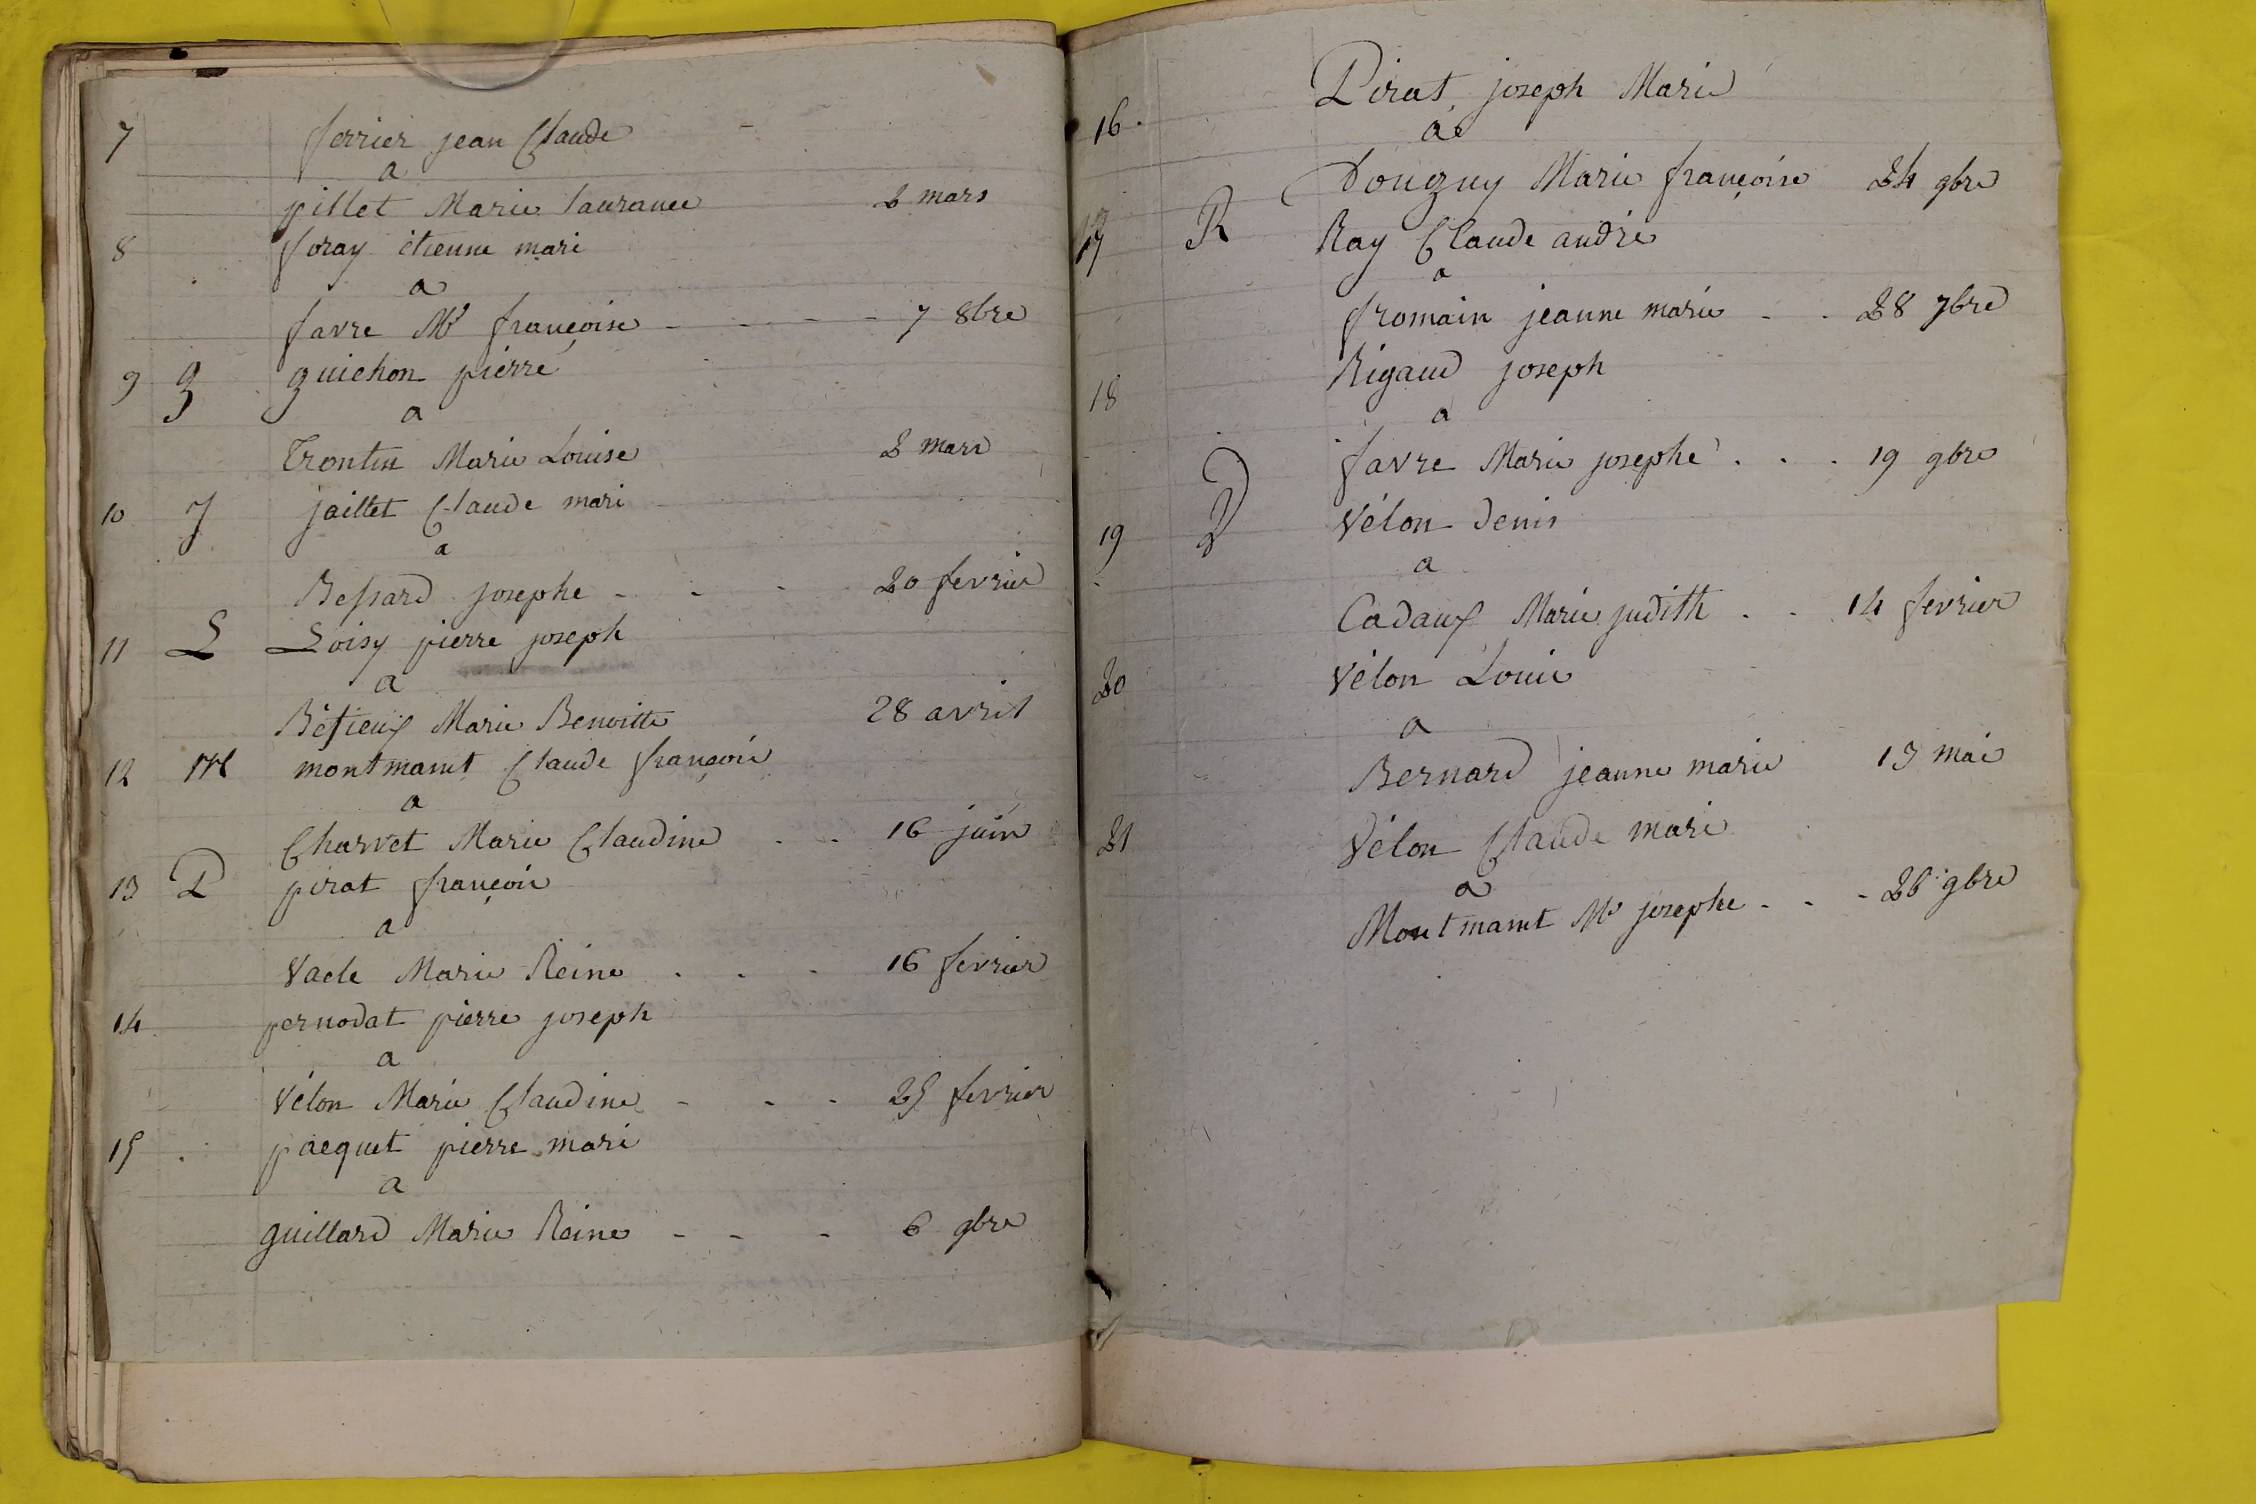 7 ferrier jean Claude
a
pillet Marie laurance 2 mars
8 foray étienne mari
a
favre Me françoise - - - - 7 8bre
9 g guichon pierre
a
Trontin Marie Louise 2 mars
10 J jaillet Claude mari
a
Bessard josephe - - - 20 fevrier
11 L Loisy pierre joseph
a
Bésieux Marie Benoitte 28 avril
12 M montmaret Claude françois
a
Charvet Marie Claudine - - 16 juin
13 P pirat françois
a
Vacle Marie Reine . . - 16 fevrier
14 pernodat pierre joseph
a
Vélon Marie Claudine - - - 25 fevrier
15 pacquet pierre mari
a
guillard Marie Reine - - - 6 9bre
16 Pirat joseph Marie
a
Douguy Marie françoise 24 9bre
17 R Ray Claude andré
a
fromain jeanne marie - . 28 7bre
18 Rigaud joseph
a
favre Marie josephe . . . 19 9bre
19 V Vélon denis
a
Cadaux Marie judith . - 14 fevrier
20 Vélon Louis
a
Bernard jeanne marie 13 mai
21 Vélon Claude mari
a
Montmaret Me josephe - . - 26 9bre